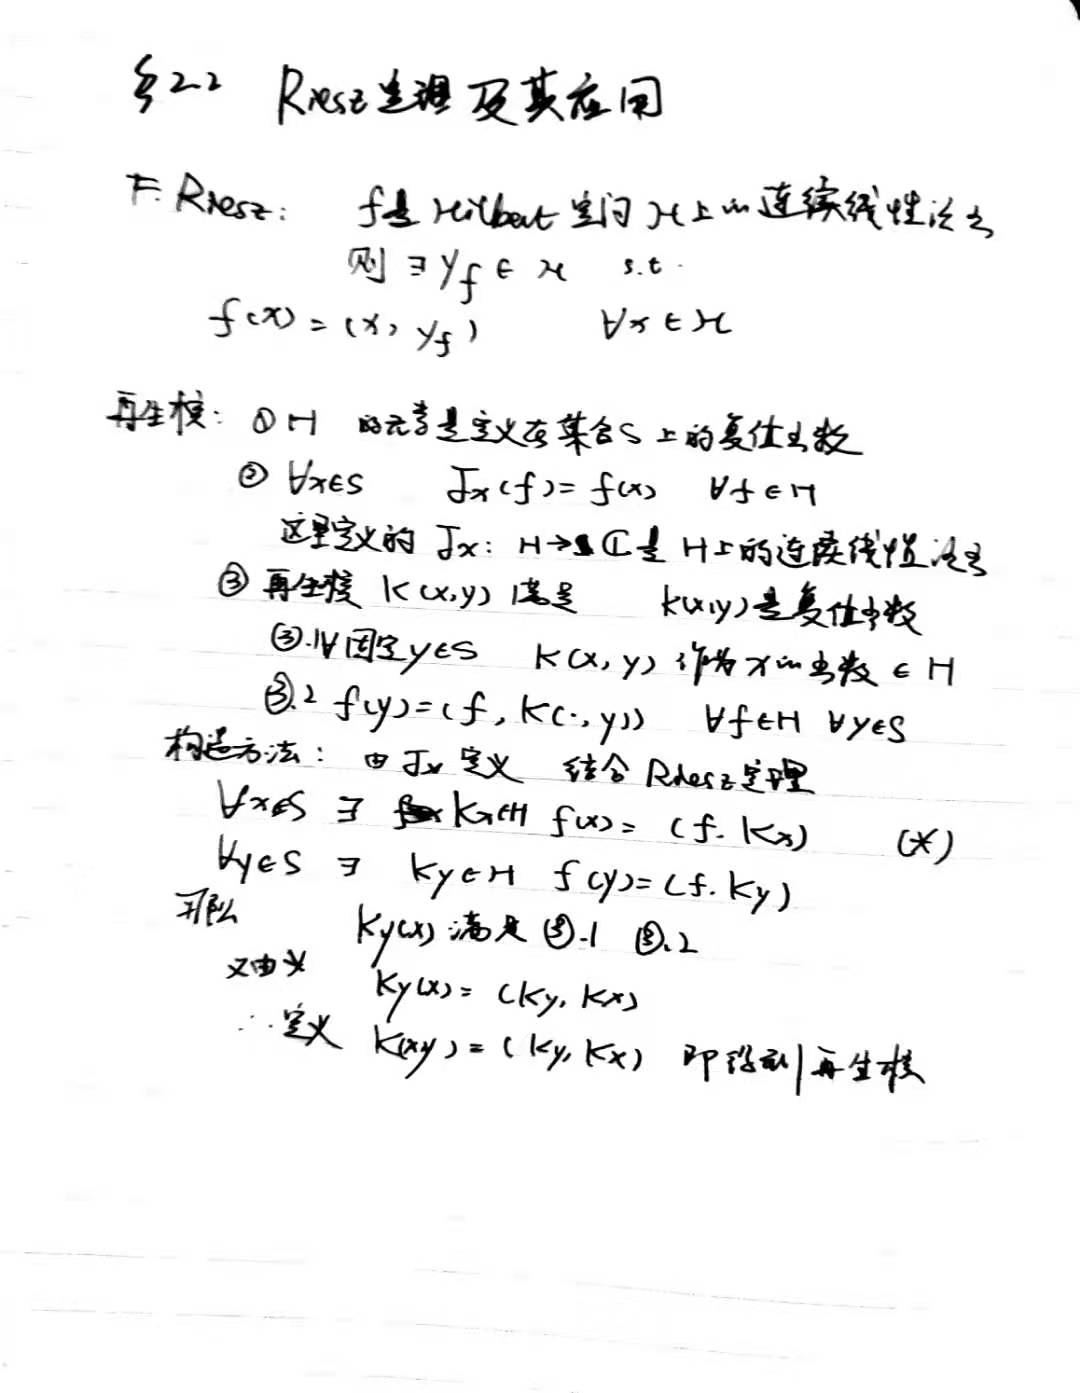 §2.2 Riesz定理及其应用
F. Riesz: f是Hilbert空间H上的连续线性泛函
则 ∃ y_f ∈ H s.t.
f(x) = (x, y_f) ∀x ∈ H
再生核: ① H 的元素是定义在集合S上的复值函数
② ∀x∈S J_x(f) = f(x) ∀f ∈ H
这里定义的 J_x: H→ℂ是 H上的连续线性泛函
③ 再生核 K(x,y) 满足 K(x,y)是复值函数
③.1 ∀固定y∈S K(x, y) 作为x的函数 ∈ H
③.2 f(y) = (f, K(·, y)) ∀f∈H ∀y∈S
构造方法: 由 J_x 定义 结合 Riesz定理
∀x∈S ∃ K_x∈H f(x) = (f. K_x) (*)
∀y∈S ∃ K_y∈H f(y) = (f. K_y)
K_y(x) 满足 ③.1 ③.2
又由* K_y(x) = (K_y, K_x)
∴ 定义 K(x,y) = (K_y, K_x) 即得到再生核